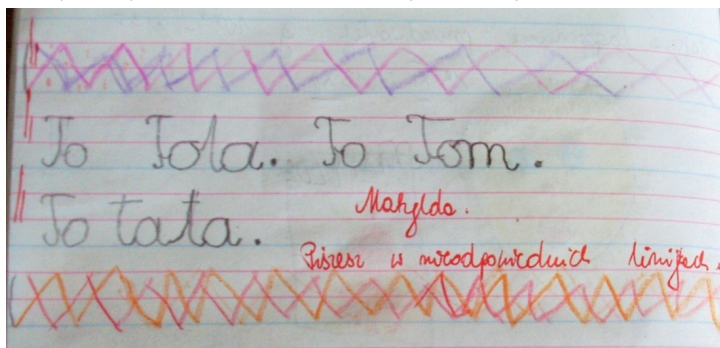 To Tola. To Tom.
To tata.
Matylda.
Piszesz w nieodpowiednich linijkach.